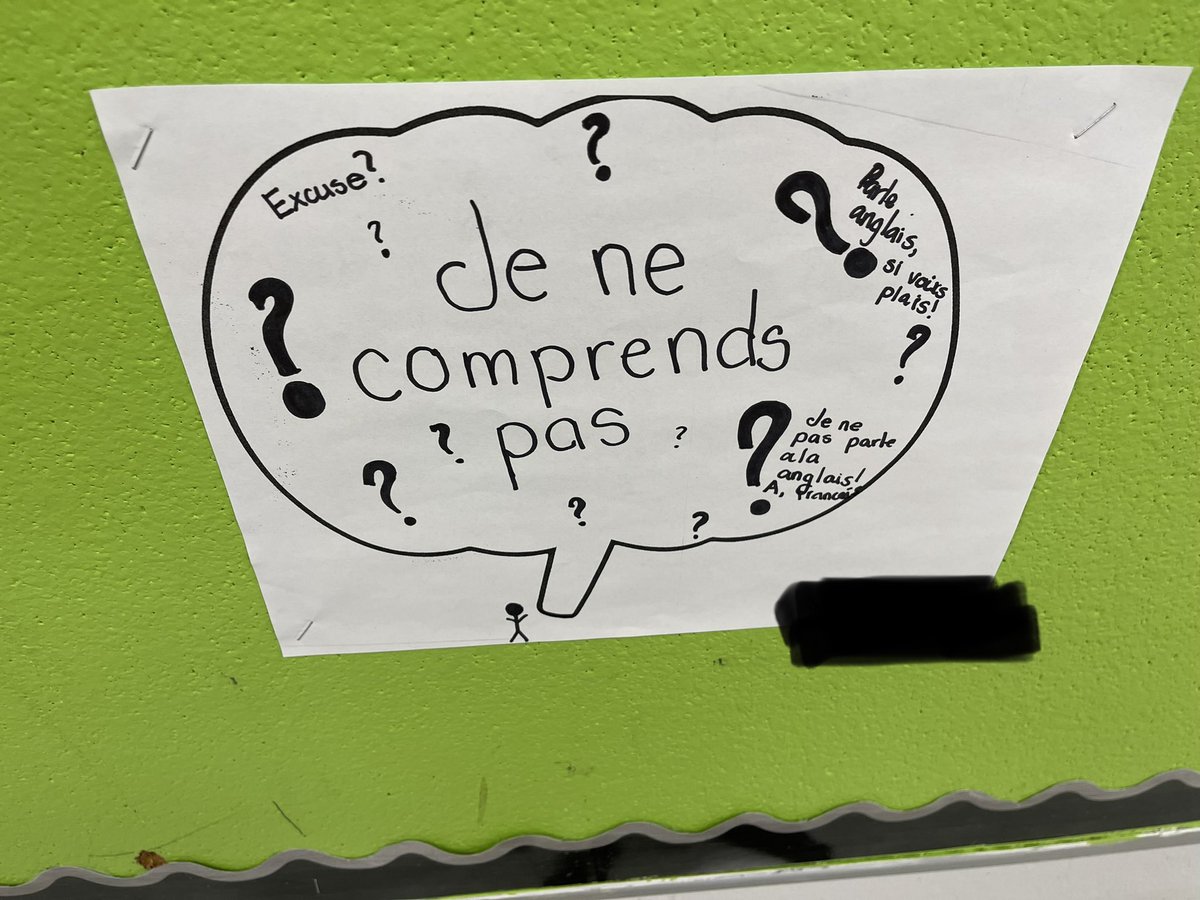 Excuse?
?
?
Je ne
comprends
pas
?
?
?
?
?
?
?
?
Parle
anglais,
si vous
plais!
?
?
Je ne
pas parle
a la
anglais!
A, français